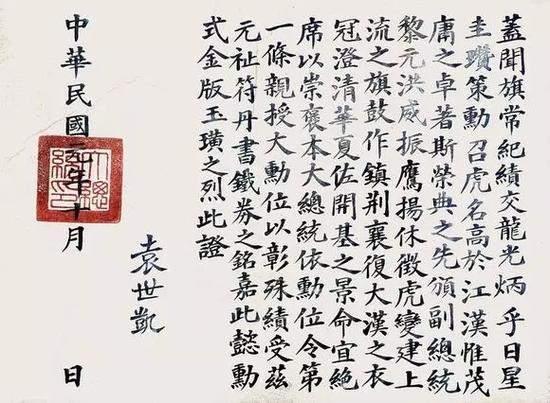 蓋聞旗常紀績交龍光炳乎日星
圭瓚策勳召虎名高於江漢惟茂
庸之卓著斯榮典之先頒副總統
黎元洪威振鷹揚休徵虎變建上
流之旗鼓作鎮荆襄復大漢之衣
冠澄清華夏佐開基之景命宜絕
席以崇褒本大總統依勳位令第
一條親授大勳位以彰殊績受茲
元祉符丹書鐵券之銘嘉此懿勳
式金版玉璜之烈此證
袁世凱
中華民國元年十月 日
大總統印